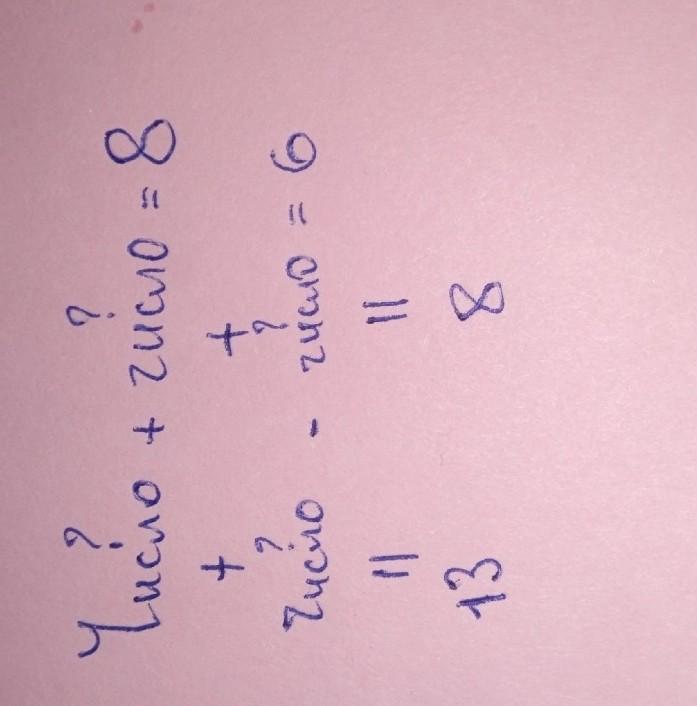 ? ?
Число + число = 8
+ +
? ?
число - число = 6
= =
13 8